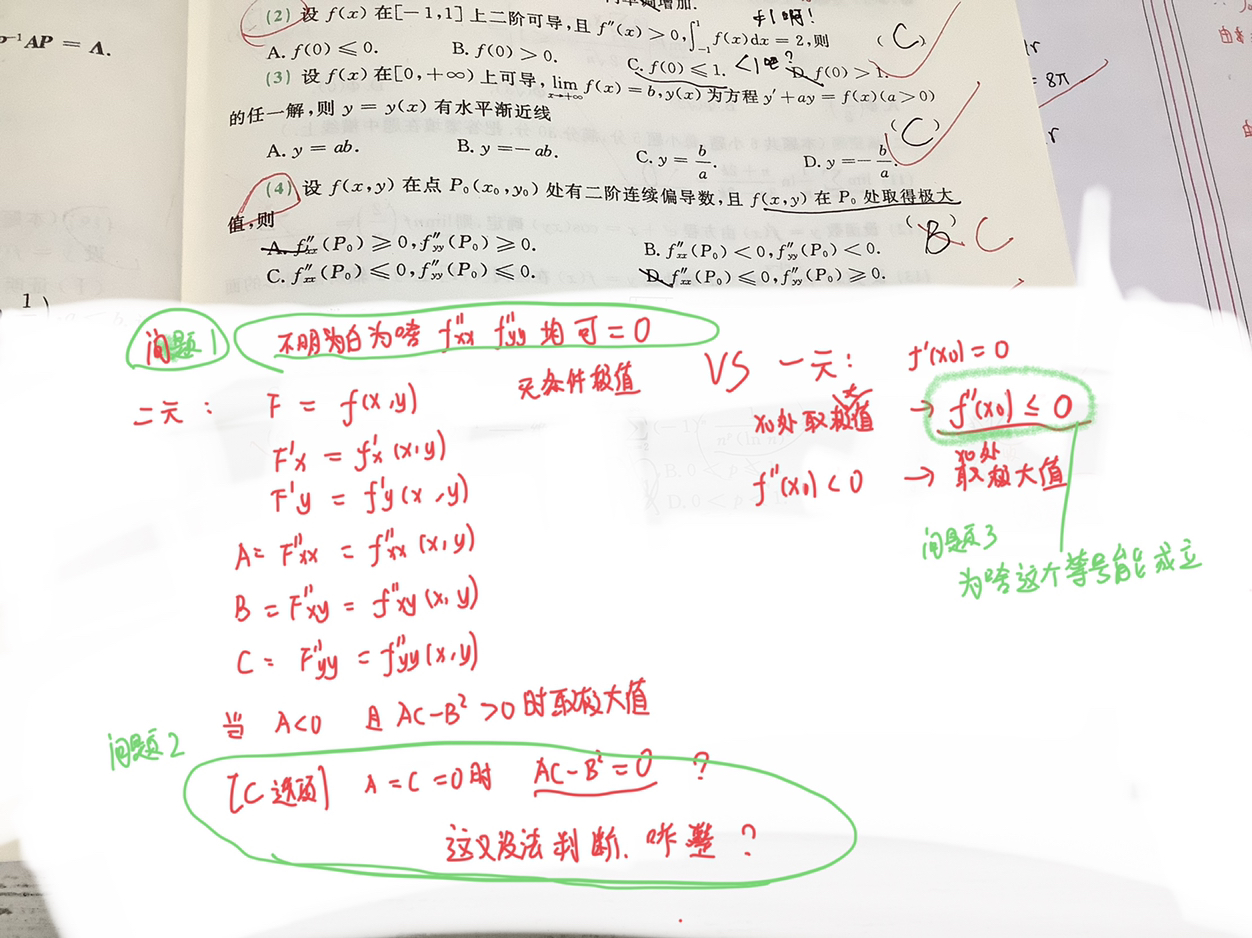 p⁻¹AP = A.
(2) 设 f(x) 在[-1,1]上二阶可导,且 f″(x) > 0, ∫₋₁¹ f(x)dx = 2,则 (C)
A. f(0) ≤ 0. B. f(0) > 0. C. f(0) ≤ 1. <1吧? D. f(0) > 1.
(3) 设 f(x) 在[0,+∞)上可导, lim x→+∞ f(x) = b, y(x) 为方程 y′ + ay = f(x)(a > 0)
的任一解,则 y = y(x) 有水平渐近线 (C)
A. y = ab. B. y = - ab. C. y = b/a. D. y = - b/a.
(4) 设 f(x,y) 在点 P₀(x₀,y₀) 处有二阶连续偏导数,且 f(x,y) 在 P₀ 处取得极大
值,则 (B) C
A. f″xx(P₀) ≥ 0, f″yy(P₀) ≥ 0. B. f″xx(P₀) < 0, f″yy(P₀) < 0.
C. f″xx(P₀) ≤ 0, f″yy(P₀) ≤ 0. D. f″xx(P₀) ≤ 0, f″yy(P₀) ≥ 0.
= 8π
问题1 不明白为啥 f″xx f″yy 均可 = 0
二元: F = f(x,y) 无条件极值
F′x = f′x(x,y)
F′y = f′y(x,y)
A = F″xx = f″xx(x,y)
B = F″xy = f″xy(x,y)
C = F″yy = f″yy(x,y)
当 A<0 且 AC-B² >0 时取极大值
VS 一元: f′(x₀) = 0
x₀处取极大值 → f″(x₀) ≤ 0
f″(x₀) < 0 → x₀处取极大值
问题3
为啥这个等号能成立
问题2
[C选项] A = C = 0时 AC-B² = 0 ?
这又没法判断. 咋整?